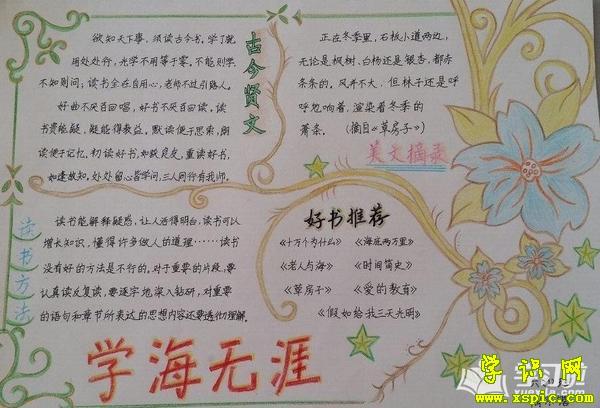 古今贤文
欲知天下事，须读古今书。学了就
用处处行，光学不用等于零。不能则学，
不知则问；读书全在自用心，老师不过引路人。
好曲不厌百回唱，好书不厌百回读。读
书贵能疑，疑能得教益。默读便于思索，朗
读便于记忆。初读好书，如获良友，重读好书，
如逢故知。处处留心皆学问，三人同行有我师。
正在冬季里，石板小道两边，
无论是枫树、白杨还是银杏，都赤
条条的。风并不大，但林子还是呼
呼地响着，渲染着冬季的
萧条。（摘自《草房子》）
美文摘录
读书方法
读书能解释疑惑，让人活得明白，读书可以
增长知识，懂得许多做人的道理……读书
没有好的方法是不行的。对于重要的片段，要
认真读反复读，要逐字地深入钻研，对重要
的语句和章节所表达的思想内容还要透彻理解。
好书推荐
《十万个为什么》 《海底两万里》
《老人与海》 《时间简史》
《草房子》 《爱的教育》
《假如给我三天光明》
学海无涯
学识网
www.xspic.com